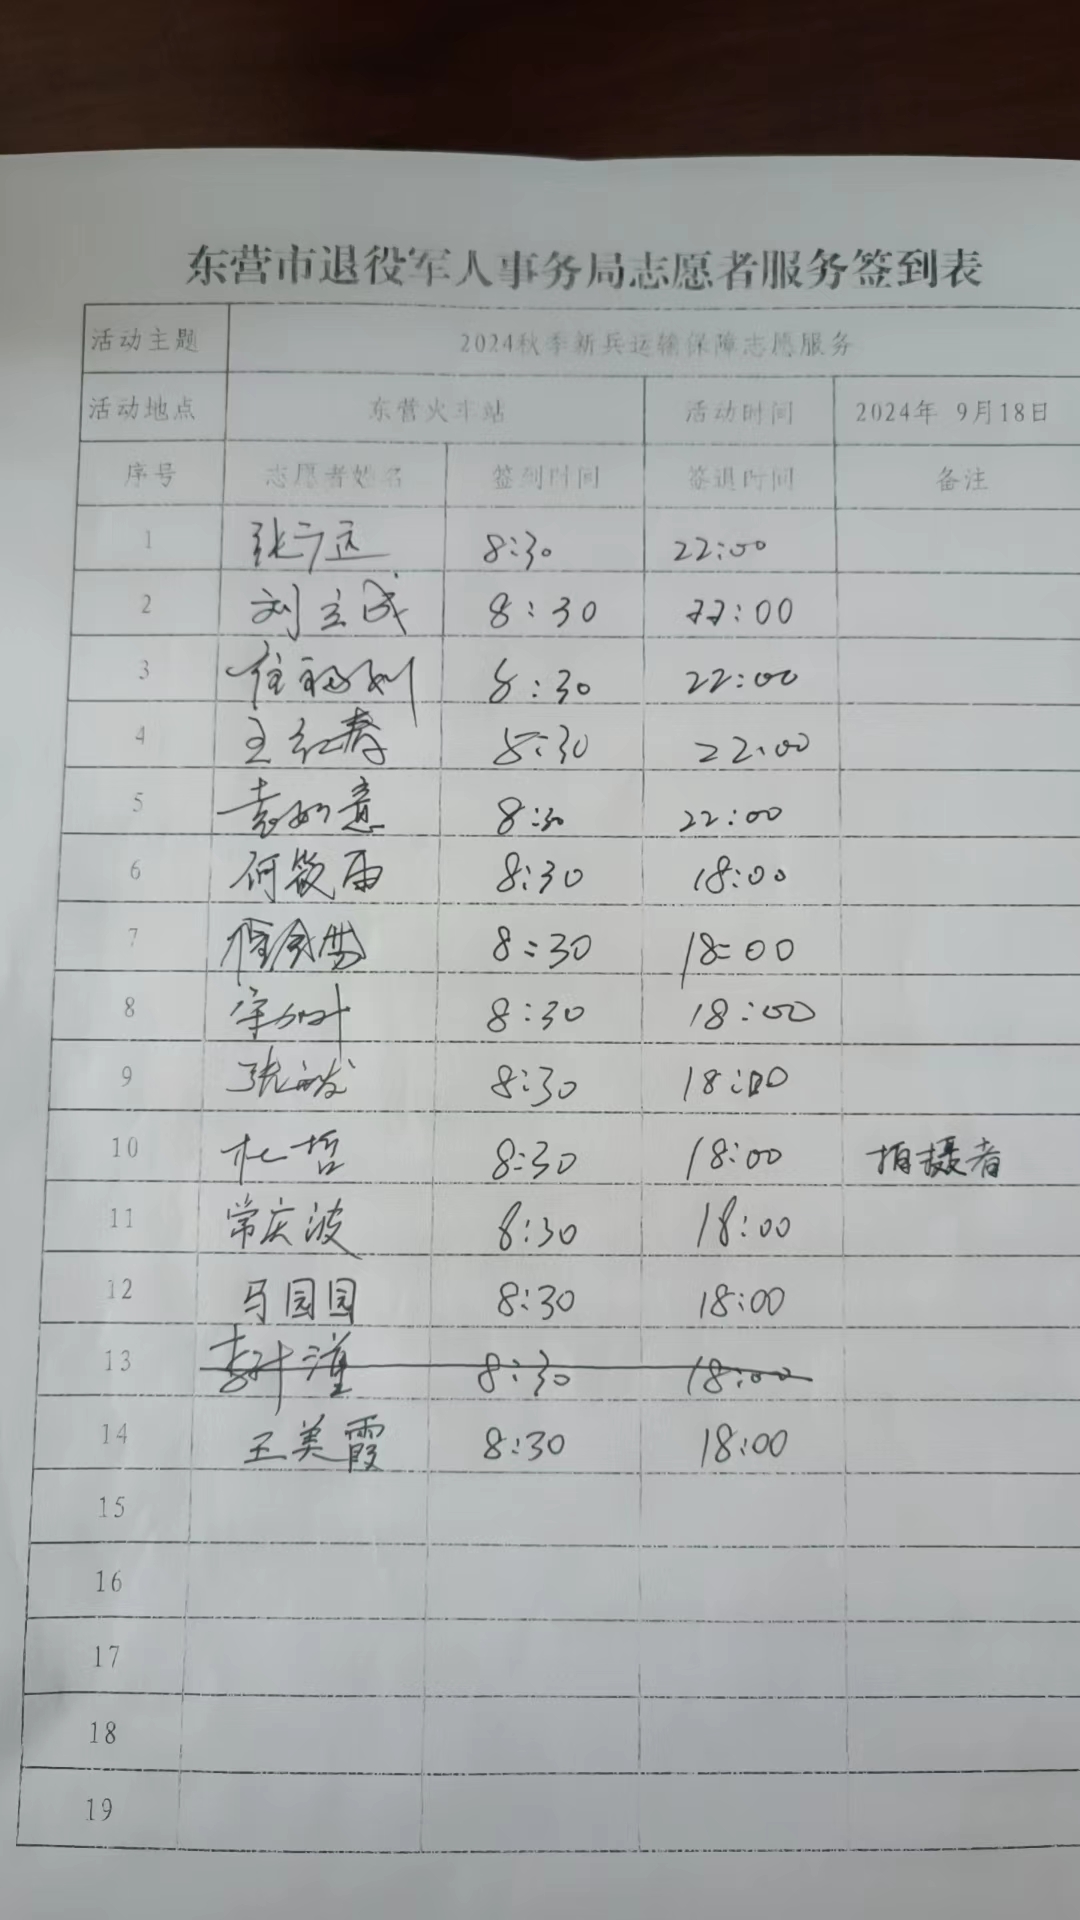 东营市退役军人事务局志愿者服务签到表
活动主题 2024秋季新兵运输保障志愿服务
活动地点 东营火车站 活动时间 2024年 9月18日
序号 志愿者姓名 签到时间 签退时间 备注
1 张广远 8:30 22:00
2 刘立成 8:30 22:00
3 8:30 22:00
4 王红春 8:30 22:00
5 袁如意 8:30 22:00
6 何筱雨 8:30 18:00
7 8:30 18:00
8 8:30 18:00
9 张 8:30 18:00
10 杜哲 8:30 18:00 拍摄者
11 常庆波 8:30 18:00
12 马园园 8:30 18:00
13 8:30 18:00
14 王美霞 8:30 18:00
15
16
17
18
19